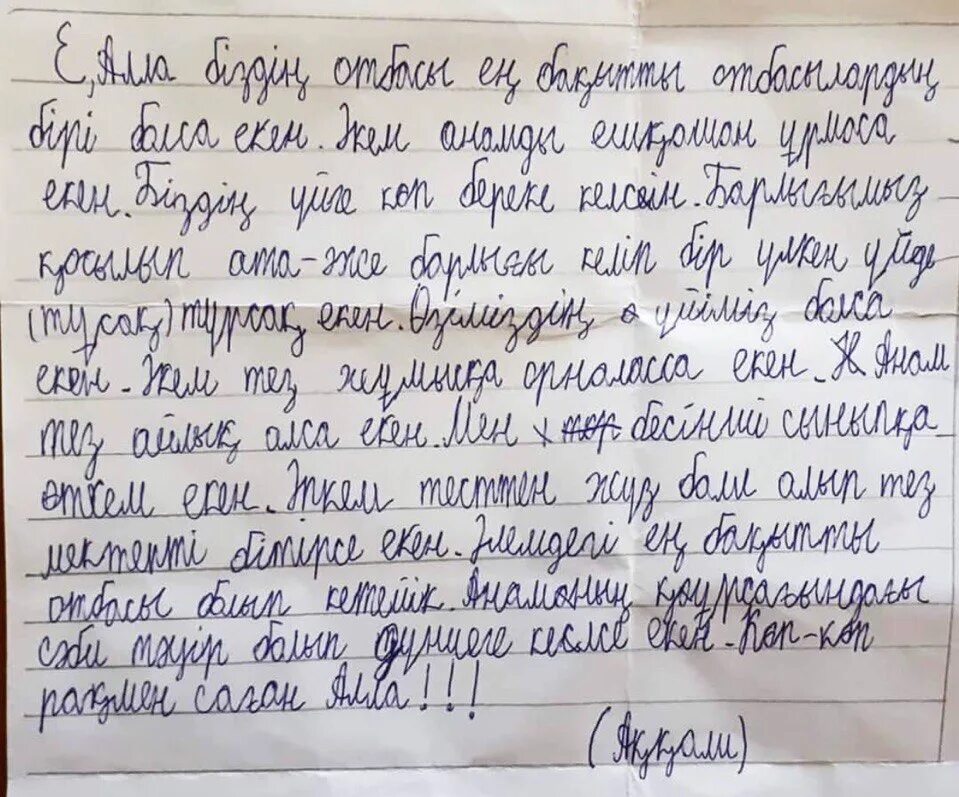 Е, Алла біздің отбасы ең бақытты отбасылардың
бірі болса екен. Әкем анамды ешқашан ұрмаса
екен. Біздің үйге көп береке келсін. Барлығымыз
қосылып ата-әже барлығы келіп бір үлкен үйде
(тұсақ) тұрсақ екен. Өзіміздің үйіміз болса
екен. Әкем тез жұмысқа орналасса екен. Анам
тез айлық алса екен. Мен бесінші сыныпқа
өткем екен. Әпкем тесттен жүз балл алып тез
мектепті бітірсе екен. Әлемдегі ең бақытты
отбасы болып кетейік. Анамның құрсағындағы
сәби тәуір болып дүниеге келсе екен. Көп-көп
рақмен саған Алла!!!
(Аққали)